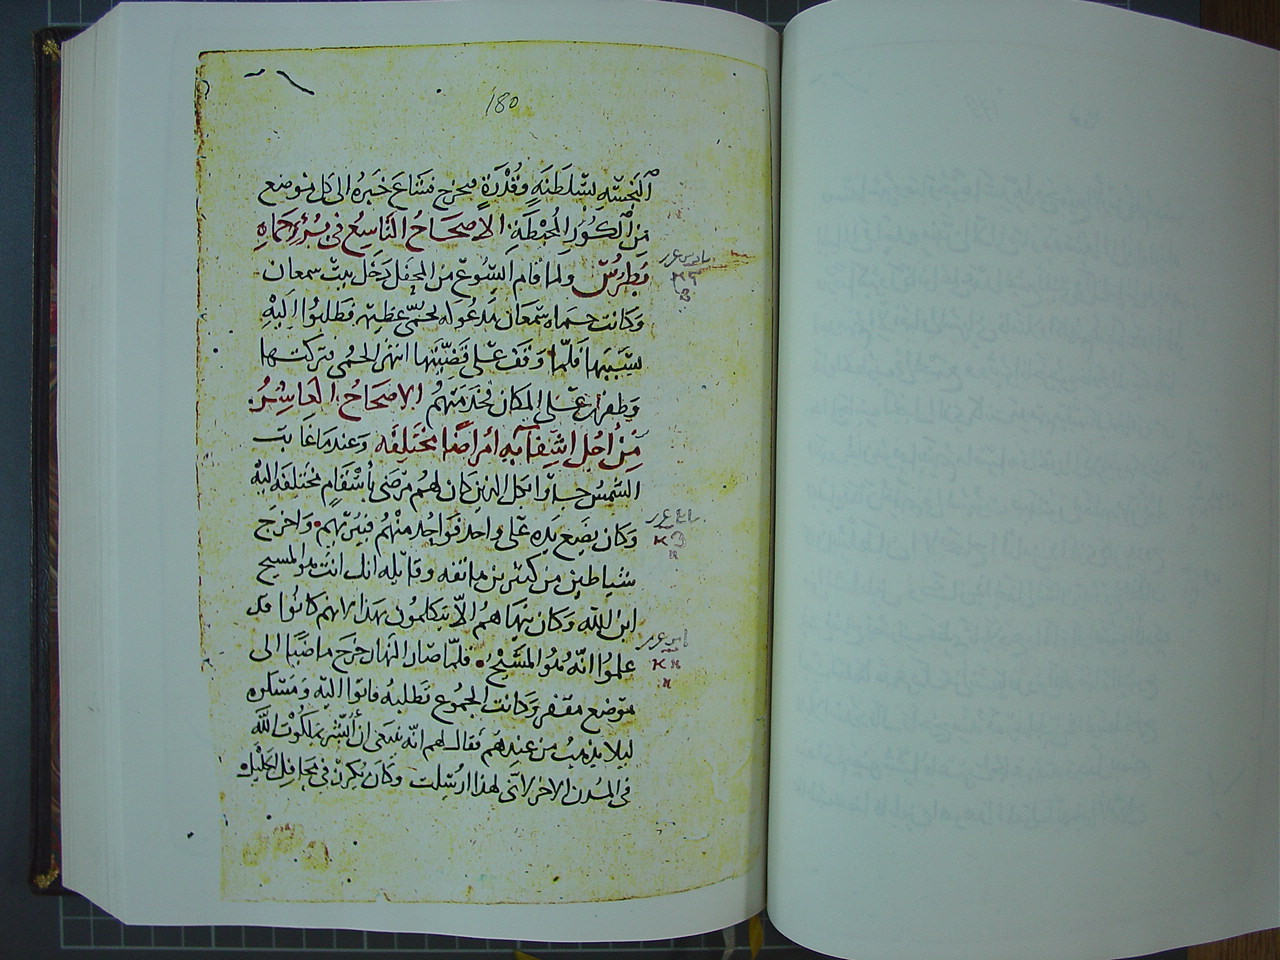 180
النجسه بسلطنةٍ وقُدْرَةٍ فيخرج فشاعَ خبرهُ الى كل موضع
مِن الكُورِ المُحيْطَةِ الاصحَاحُ التاسِعُ في بُرْءِ حَماهِ
بُطرُسْ ولما قام اليَسُوع من المحفل دخل بيت سمعان
وكانت حماه سمعان مدعُوله بحمّى عظيمه فطلبوا اليهِ
بسَببها فلمّا وقف على قصبتها انتهر الحمى فتركتها
على المكان تخدمَتهُم الاصحَاحُ العَاشِرُ
مِنْ اجل اشفَايه امراضًا مختلفه وعندما غابت
الشمسُ جاوا بكل الذين كان لهم مرضى باسْقامٍ مختلفه اليه
وكان يضع يده على واحد فواحد منهُم فيبرّيهم واخرجَ
شياطين من كثيرين هاتفه وقايله انك انت هو المسيح
ابن الله وكان ينهاهمُ الّا يتكلمون بهذا لانهم كانُوا قد
علموا انّه هُوَ المسَيحُ فلمّا صار النهار خرج ماضيًا الى
موضع مقفر وكانت الجموع تطلبهُ فاتوا اليهِ ومسَكوه
ليلا يذهبُ من عندهم فقال لهم انّه ينبغي ان أبشّر بملكوتْ اللّه
في المدن الاخر لانّى لهذا ارسِلت وكان يكرزْ في محافِل الجَليْل